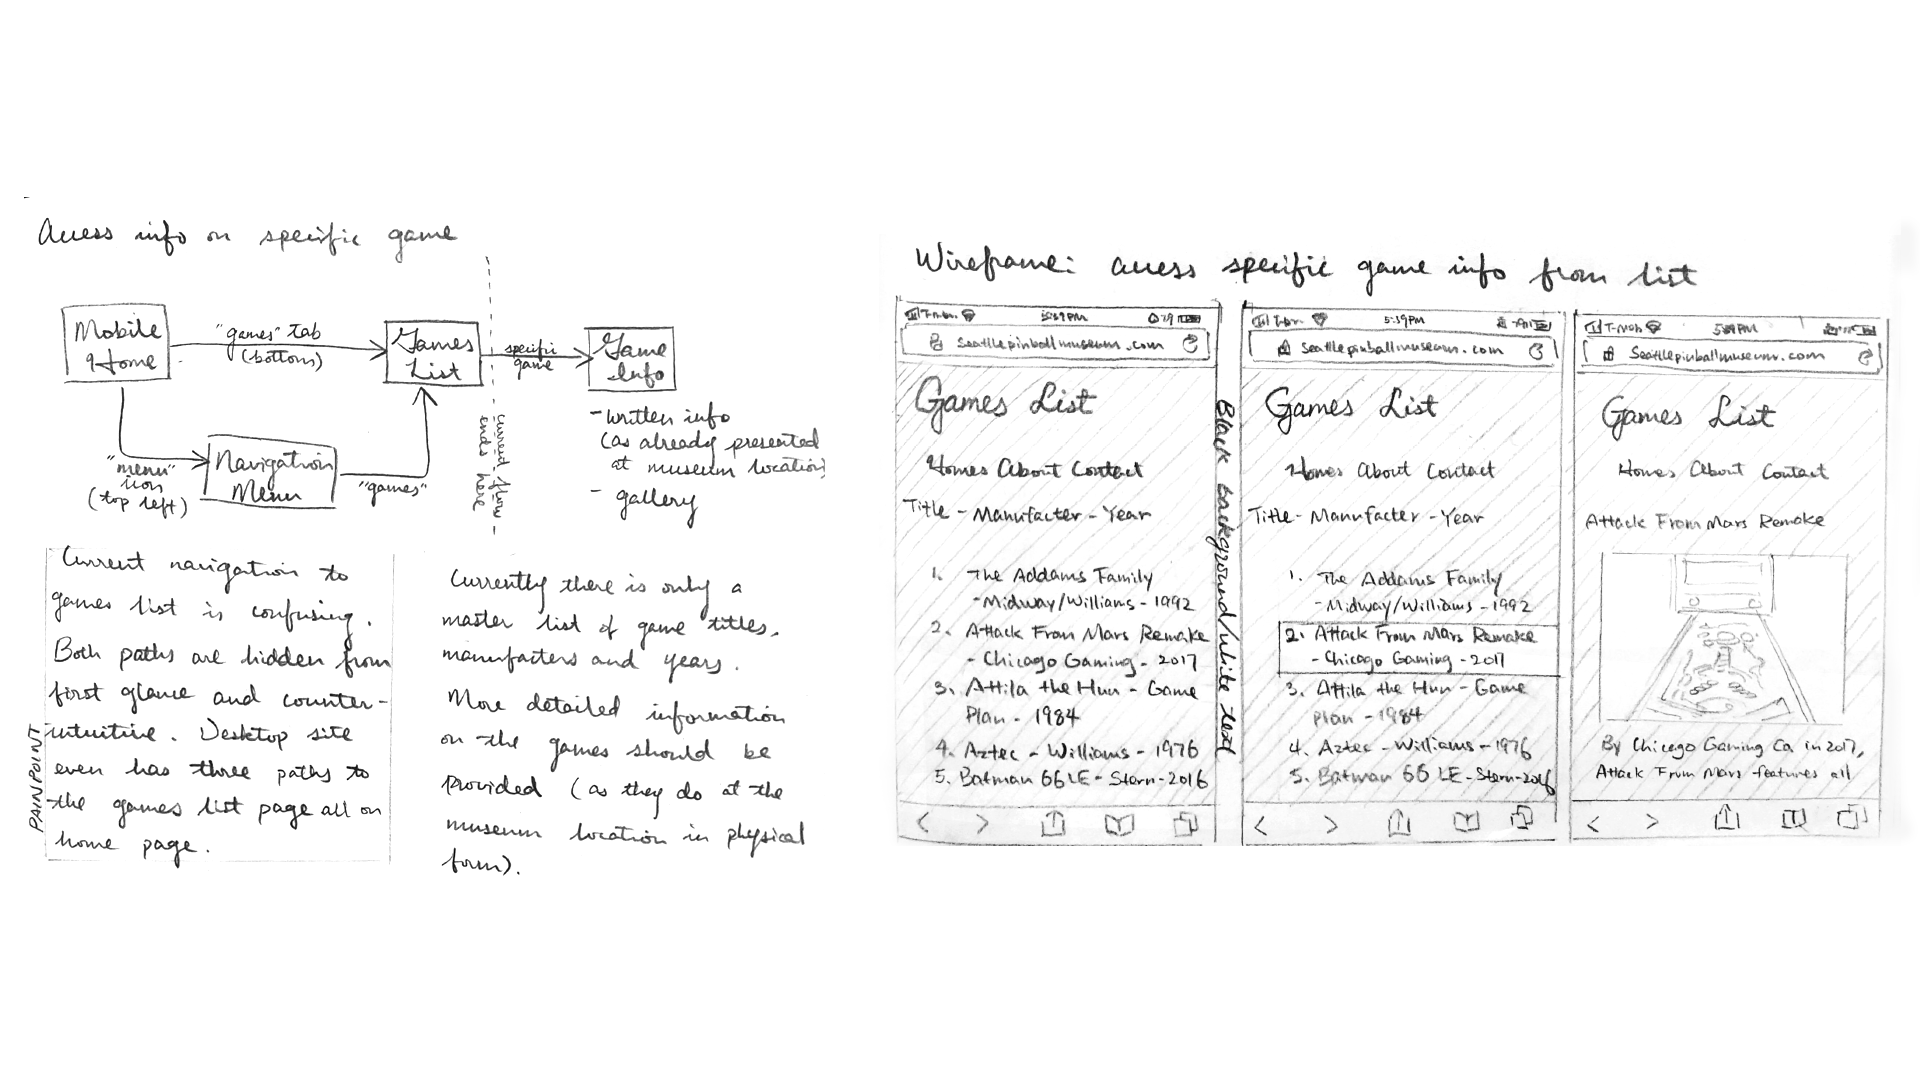 Access info on specific game
Mobile
Home
"games" tab
(bottom)
Games
List
specific
game
Game
Info
"menu"
icon
(top left)
Navigation
Menu
"games"
current flow
ends here
- written info
(as already presented
at museum location)
- gallery
PAINPOINT
Current navigation to
games list is confusing.
Both paths are hidden from
first glance and counter-
intuitive. Desktop site
even has three paths to
the games list page all on
home page.
Currently there is only a
master list of game titles,
manufacters and years.
More detailed information
on the games should be
provided (as they do at the
museum location in physical
form).
Wireframe: access specific game info from list
5:39PM
seattlepinballmuseum.com
Games List
Homes About Contact
Title - Manufacter - Year
1. The Addams Family
- Midway/Williams - 1992
2. Attack From Mars Remake
- Chicago Gaming - 2017
3. Attila the Hun - Game
Plan - 1984
4. Aztec - Williams - 1976
5. Batman 66 LE - Stern - 2016
Black background/white text
5:39PM
seattlepinballmuseum.com
Games List
Homes About Contact
Title - Manufacter - Year
1. The Addams Family
- Midway/Williams - 1992
2. Attack From Mars Remake
- Chicago Gaming - 2017
3. Attila the Hun - Game
Plan - 1984
4. Aztec - Williams - 1976
5. Batman 66 LE - Stern - 2016
T-Mob
5:39PM
seattlepinballmuseum.com
Games List
Homes About Contact
Attack From Mars Remake
By Chicago Gaming Co in 2017,
Attack From Mars features all